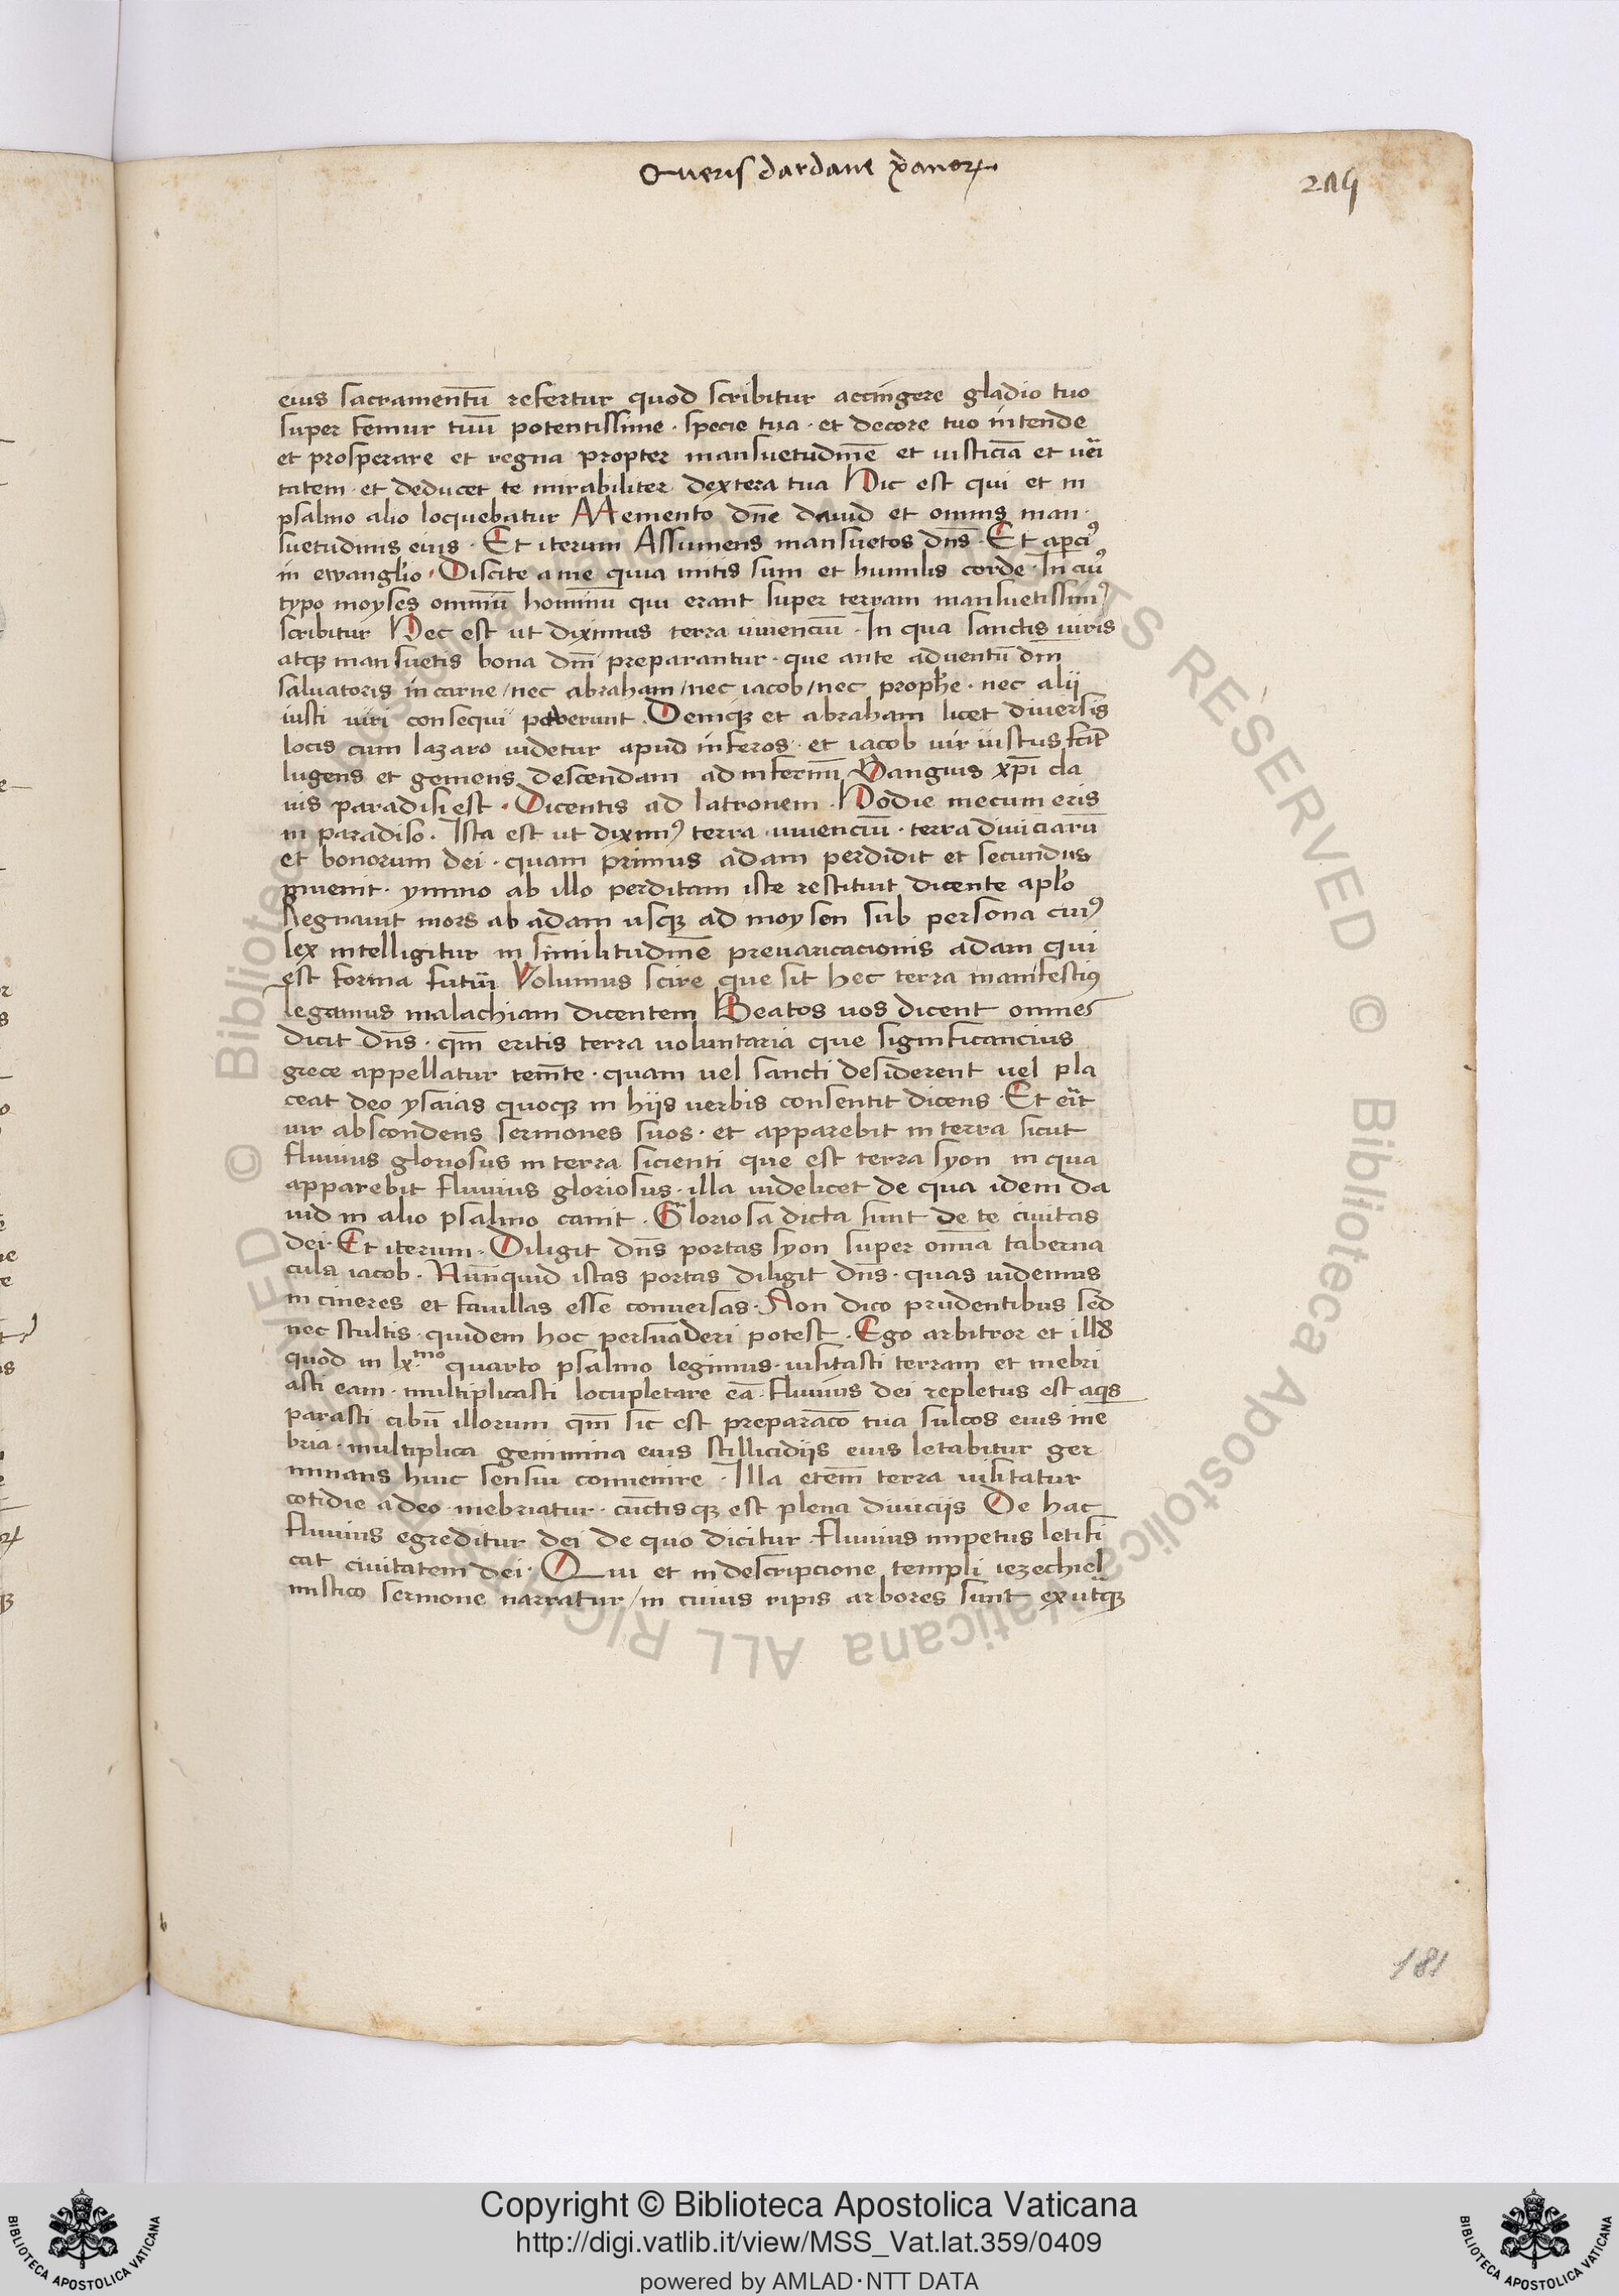 Queris dardane xp̄anoꝝ
219
eius sacramentū refertur quod scribitur accingere gladio tuo
super femur tuū potentissime · specie tua · et decore tuo intende
et prosperare et regna propter mansuetudinē et iusticiā et ueri
tatem · et deducet te mirabiliter dextera tua Hic est qui et in
psalmo alio loquebatur Memento dn̄e dauid et omnis man·
suetudinis eius · Et iterum Assumens mansuetos dn̄s · Et aperciꝰ
in ewangl̓io · Discite a me quia mitis sum et humilis corde · In cuiꝰ
typo moyses omniū hominū qui erant super terram mansuetissimꝰ
scribitur Hec est ut diximus terra uiuenciū · In qua sanctis uiris
atqꝫ mansuetis bona dn̄i preparantur · que ante aduentū dn̄i
saluatoris in carne / nec abraham / nec iacob / nec prophe · nec alii
iusti uiri consequi potuerunt · Deniqꝫ et abraham licet diuersis
locis cum lazaro uidetur apud inferos · et iacob uir iustus
lugens et gemens descendam ad infernū Sanguis xp̄i cla
uis paradisi est · Dicentis ad latronem · Hodie mecum eris
in paradiso · Ista est ut diximꝰ terra uiuenciū · terra diuiciarū
et bonorum dei · quam primus adam perdidit et secundus
inuenit · ymmo ab illo perditam iste restituit dicente apl̓o
Regnauit mors ab adam usqꝫ ad moysen sub persona cuiꝰ
lex intelligitur in similitudinē preuaricacionis adam qui
est forma futuri Volumus scire que sit hec terra manifestiꝰ
legamus malachiam dicentem Beatos uos dicent omnes
dicit dn̄s · qm̄ eritis terra uoluntaria que significancius
grece appellatur · quam uel sancti desiderent uel pla
ceat deo ysaias quoqꝫ in hiis uerbis consentit dicens · Et erit
uir abscondens sermones suos · et apparebit in terra sicut
fluuius gloriosus in terra sicienti que est terra syon in qua
apparebit fluuius gloriosus · illa uidelicet de qua idem da
uid in alio psalmo canit · Gloriosa dicta sunt de te ciuitas
dei · Et iterum · Diligit dn̄s portas syon super omnia taberna
cula iacob · Nunquid istas portas diligit dn̄s · quas uidemus
in cineres et fauillas esse conuersas · Non dico prudentibus sed
nec stultis · quidem hoc persuaderi potest · Ego arbitror et illd
quod in lx.mo quarto psalmo legimus · uisitasti terram et inebri
asti eam · multiplicasti locupletare eā · fluuius dei repletus est aqs
parasti cibū illorum qm̄ sic est preparaco tua sulcos eius ine
bria · multiplica gemmina eius stillicidiis eius letabitur ger
minans huic sensui conuenire · Illa etem̄ terra uisitatur
cotidie a deo · inebriatur · cunctisqꝫ est plena diuiciis De hac
fluuius egreditur dei de quo dicitur · fluuius impetus letifi
cat ciuitatem dei · Qui et in descripcione templi iezechiel
mistico sermone narratur / in cuius ripis arbores sunt ex utqꝫ
181
Copyright © Biblioteca Apostolica Vaticana
http://digi.vatlib.it/view/MSS_Vat.lat.359/0409
powered by AMLAD·NTT DATA